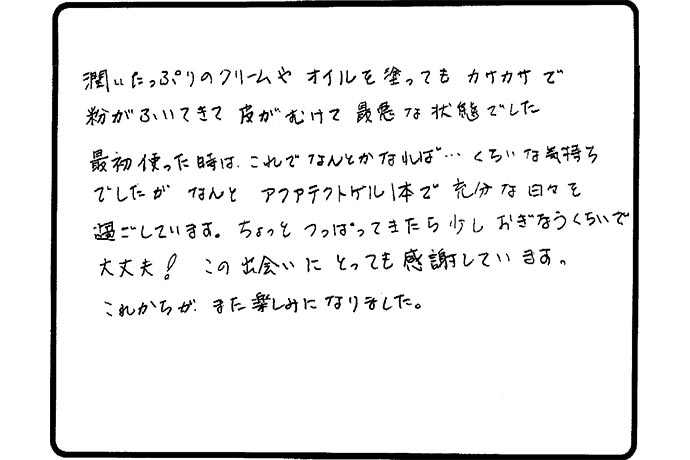 潤いたっぷりのクリームや オイルを塗っても カサカサで
粉がふいてきて 皮がむけて 最悪な状態でした
最初使った時は、これでなんとかなれば… くらいな気持ち
でしたが なんと アクアテクトゲル1本で 充分な日々を
過ごしています。ちょっと つっぱってきたら少し おぎなうくらいで
大丈夫! この出会いに とっても感謝しています。
これからが また楽しみになりました。